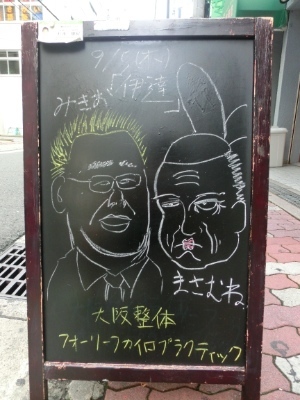 みきお「伊達」
まさむね
大阪整体
フォーリーフカイロプラクティック